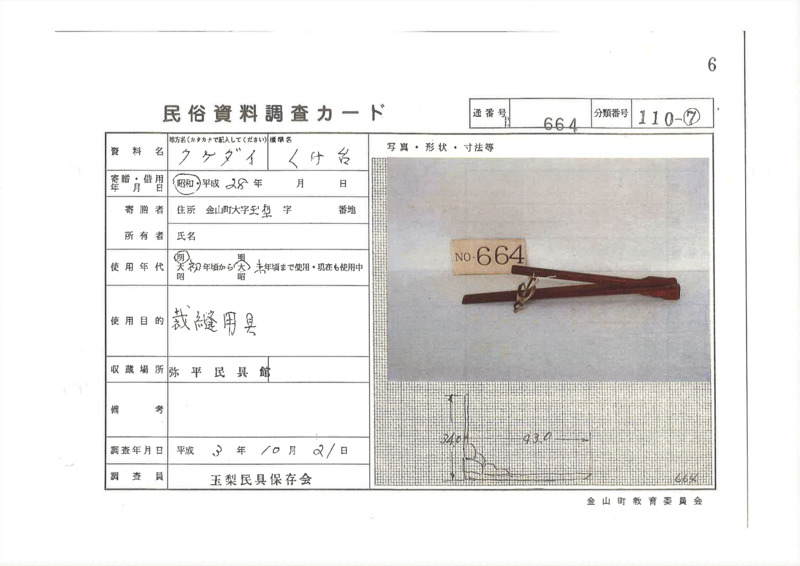 6
民俗資料調査カード
通番号 664 分類番号 110-⑦
資料名 地方名(カタカナで記入してください) クケダイ 標準名 くけ台
写真・形状・寸法等
寄贈・借用年月日 昭和・平成 28年 月 日
寄贈者 住所 金山町大字玉梨 字 番地
所有者 氏名
使用年代 明大昭 初年頃から 明大昭 末年頃まで使用・現在も使用中
使用目的 裁縫用具
収蔵場所 弥平民具館
備考
調査年月日 平成 3年 10月 21日
調査員 玉梨民具保存会
NO.664
34.0
43.0
664
金山町教育委員会